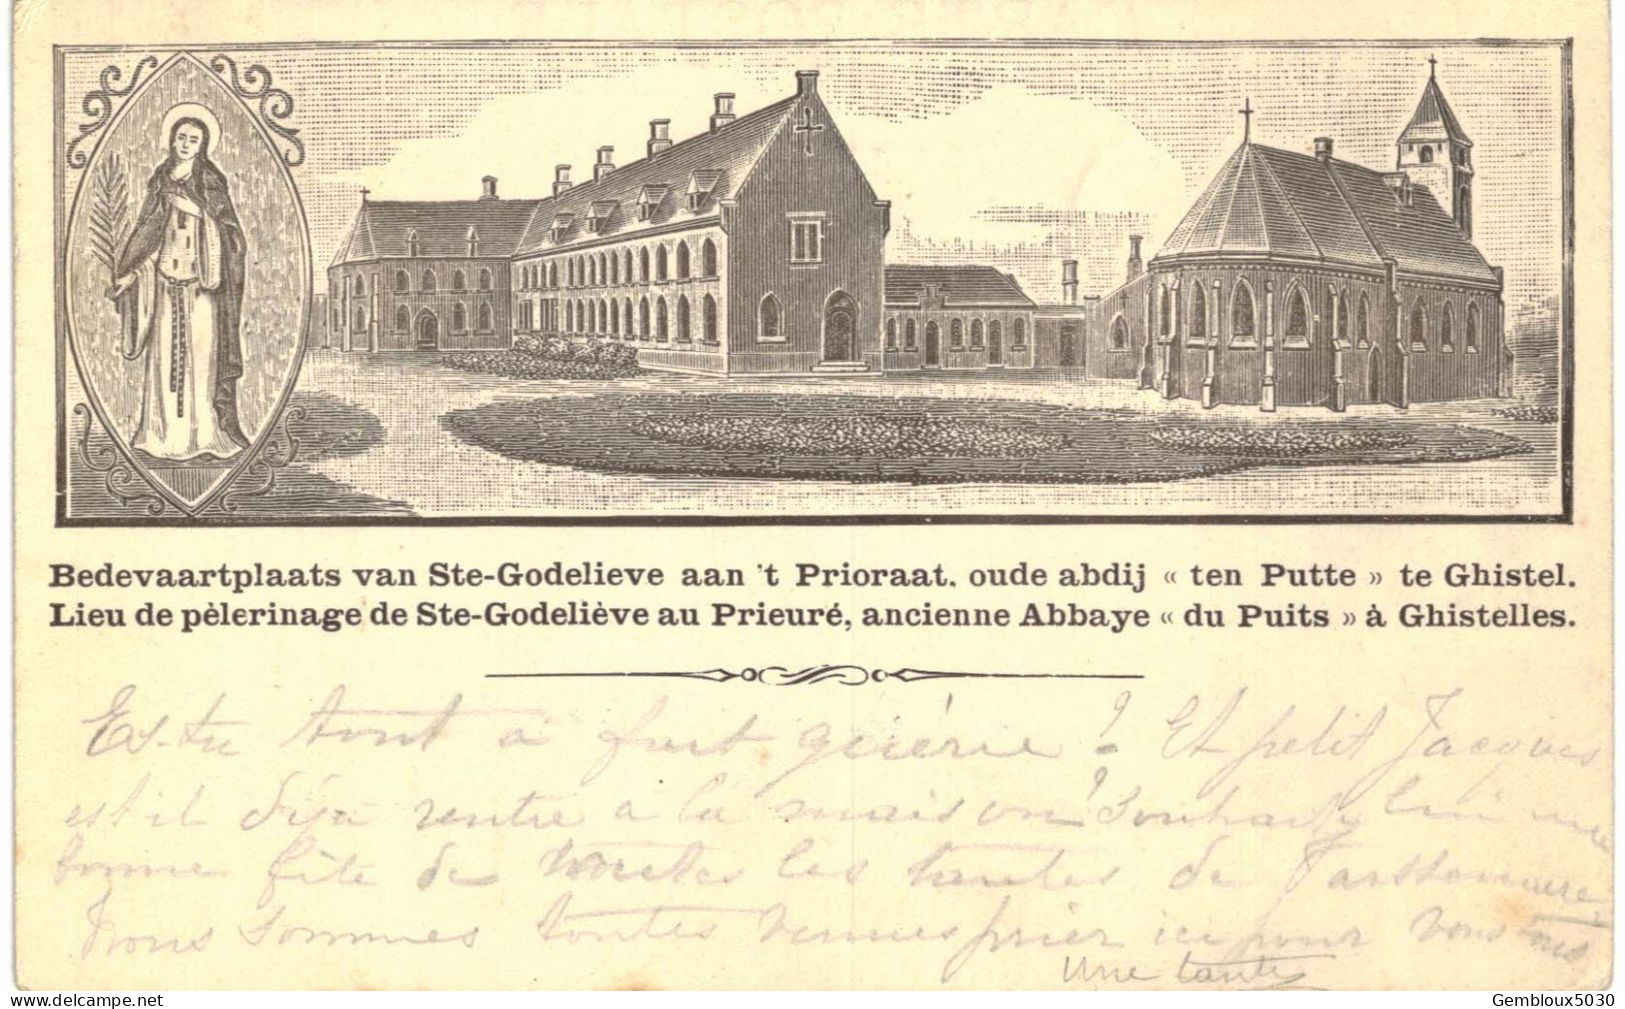 Bedevaartplaats van Ste-Godelieve aan 't Prioraat. oude abdij « ten Putte » te Ghistel.
Lieu de pèlerinage de Ste-Godeliève au Prieuré, ancienne Abbaye « du Puits » à Ghistelles.
Es-tu tout à fait guérie? Et petit Jacques
est il déja rentré à la maison? Souhaite lui une
bonne fête de toutes les tantes de
Nous sommes toutes venues prier ici pour vous tous
Une tante
Gembloux5030